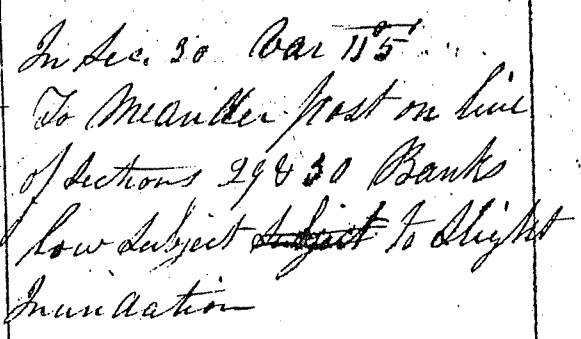 In Sec. 30 Var 11° 5'
To Meander post on line
of Sections 29 & 30 Banks
low subject subject to slight
Inundation